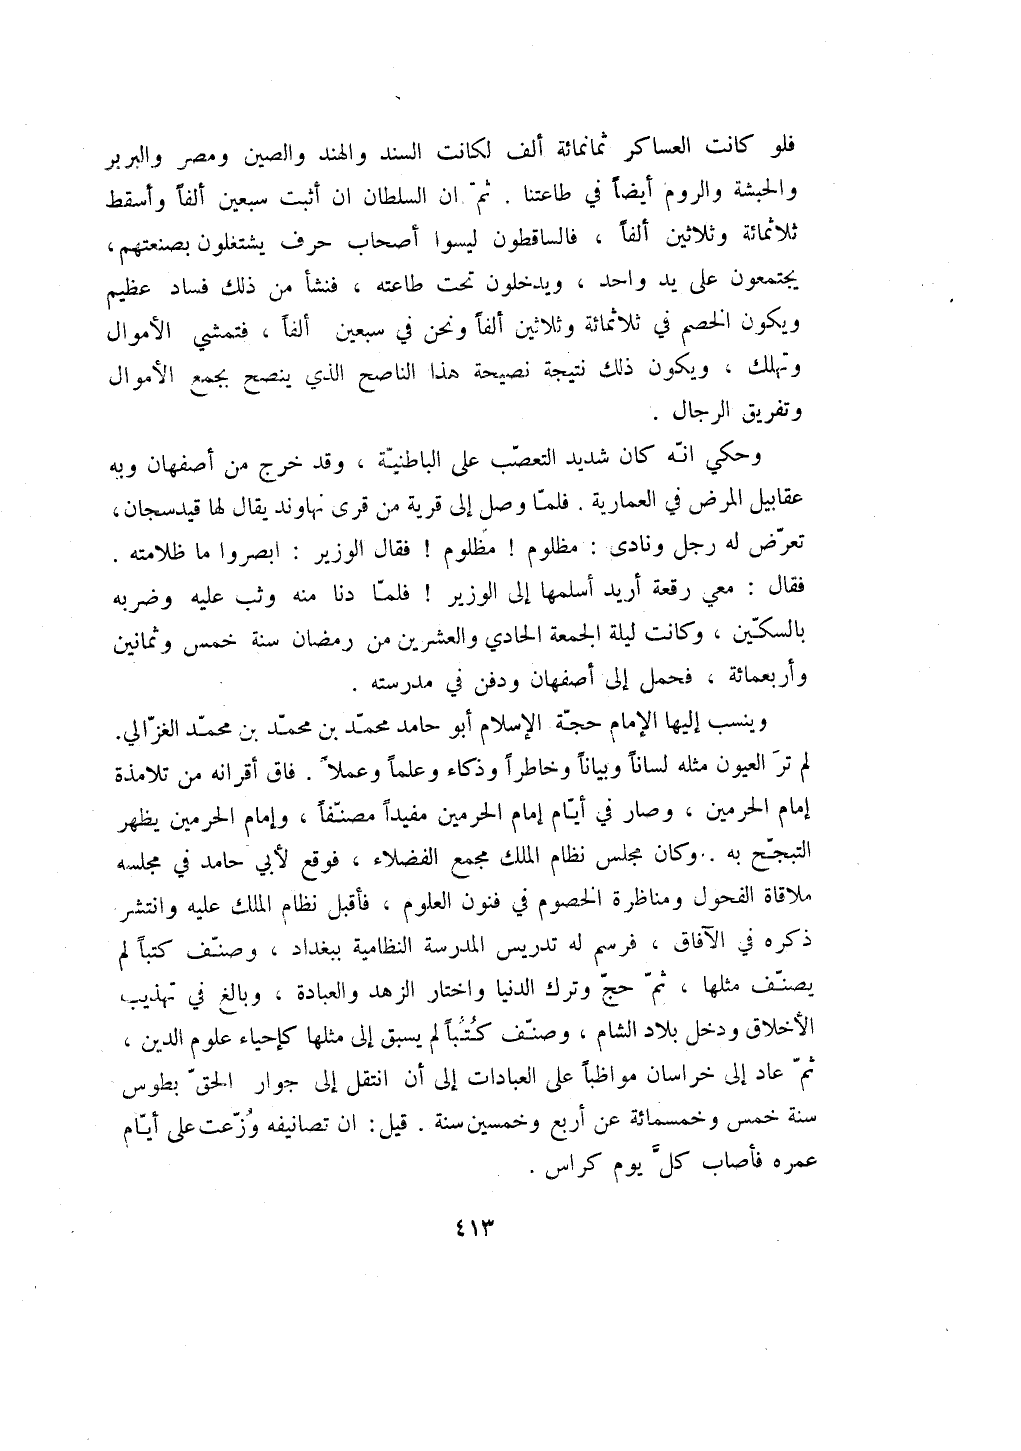 فلو كانت العساكر ثمانمائة ألف لكانت السند والهند والصين ومصر والبربر
والحبشة والروم أيضاً في طاعتنا . ثمّ ان السلطان ان أثبت سبعين ألفاً وأسقط
ثلاثمائة وثلاثين ألفاً ، فالساقطون ليسوا أصحاب حرف يشتغلون بصنعتهم ،
يجتمعون على يد واحد ، ويدخلون تحت طاعته ، فنشأ من ذلك فساد عظيم
ويكون الخصم في ثلاثمائة وثلاثين ألفاً ونحن في سبعين ألفاً ، فتمشي الأموال
وتهلك ، ويكون ذلك نتيجة نصيحة هذا الناصح الذي ينصح بجمع الأموال
وتفريق الرجال .
وحكي انّه كان شديد التعصّب على الباطنيّة ، وقد خرج من أصفهان وبه
عقابيل المرض في العمارية . فلمّا وصل إلى قرية من قرى نهاوند يقال لها قيدسجان ،
تعرّض له رجل ونادى : مظلوم ! مظلوم ! فقال الوزير : ابصروا ما ظلامته .
فقال : معي رقعة أريد أسلمها إلى الوزير ! فلمّا دنا منه وثب عليه وضربه
بالسكّين ، وكانت ليلة الجمعة الحادي والعشرين من رمضان سنة خمس وثمانين
وأربعمائة ، فحمل إلى أصفهان ودفن في مدرسته .
وينسب إليها الإمام حجّة الإسلام أبو حامد محمّد بن محمّد بن محمّد الغزّالي.
لم ترَ العيون مثله لساناً وبياناً وخاطراً وذكاء وعلماً وعملاً . فاق أقرانه من تلامذة
إمام الحرمين ، وصار في أيّام إمام الحرمين مفيداً مصنّفاً ، وإمام الحرمين يظهر
التبجّح به . وكان مجلس نظام الملك مجمع الفضلاء ، فوقع لأبي حامد في مجلسه
ملاقاة الفحول ومناظرة الخصوم في فنون العلوم ، فأقبل نظام الملك عليه وانتشر
ذكره في الآفاق ، فرسم له تدريس المدرسة النظامية ببغداد ، وصنّف كتباً لم
يصنّف مثلها ، ثمّ حجّ وترك الدنيا واختار الزهد والعبادة ، وبالغ في تهذيب
الأخلاق ودخل بلاد الشام ، وصنّف كُتُباً لم يسبق إلى مثلها كإحياء علوم الدين ،
ثمّ عاد إلى خراسان مواظباً على العبادات إلى أن انتقل إلى جوار الحقّ بطوس
سنة خمس وخمسمائة عن أربع وخمسين سنة . قيل : ان تصانيفه وُزّعت على أيّام
عمره فأصاب كلَّ يوم كراس .
٤١٣